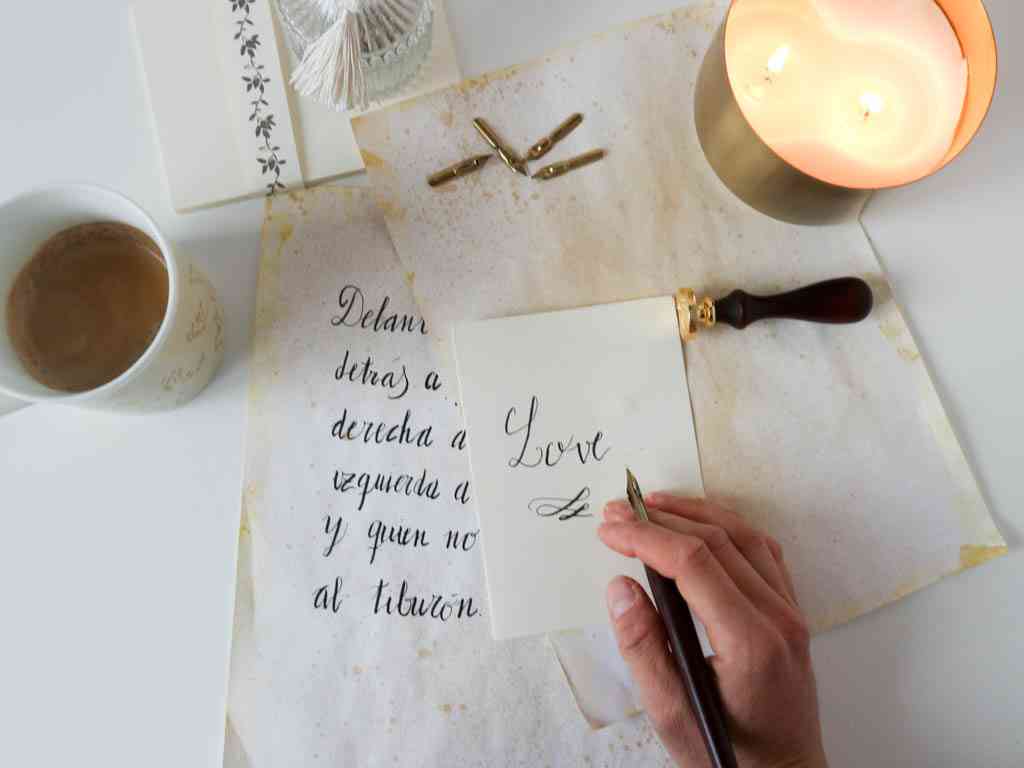 Delan
detrás a
derecha a
izquierda a
y quien no
al tiburón
Love